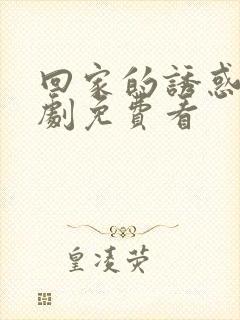 回家的誘惑
劇免費看
皇凌荧